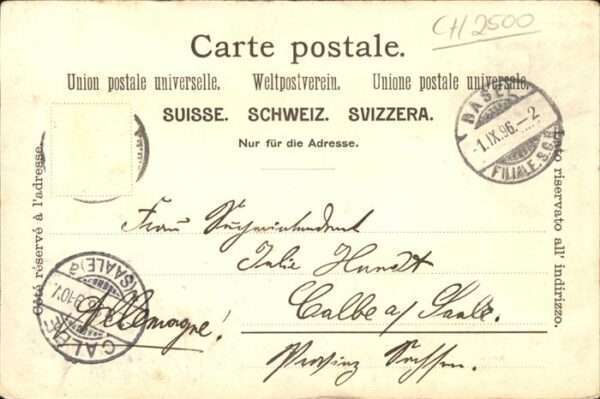 CH 2500
Carte postale.
Union postale universelle. Weltpostverein. Unione postale universale.
SUISSE. SCHWEIZ. SVIZZERA.
Nur für die Adresse.
Côté réservé à l'adresse.
Lato riservato all' indirizzo.
BASEL
-1.IX.96.-2
FILIALE.S.C.B.
Frau Superintendent
Julie Hundt
Calbe a/ Saale.
Allemagne!
Provinz Sachsen.
CALBE
(SAALE) a